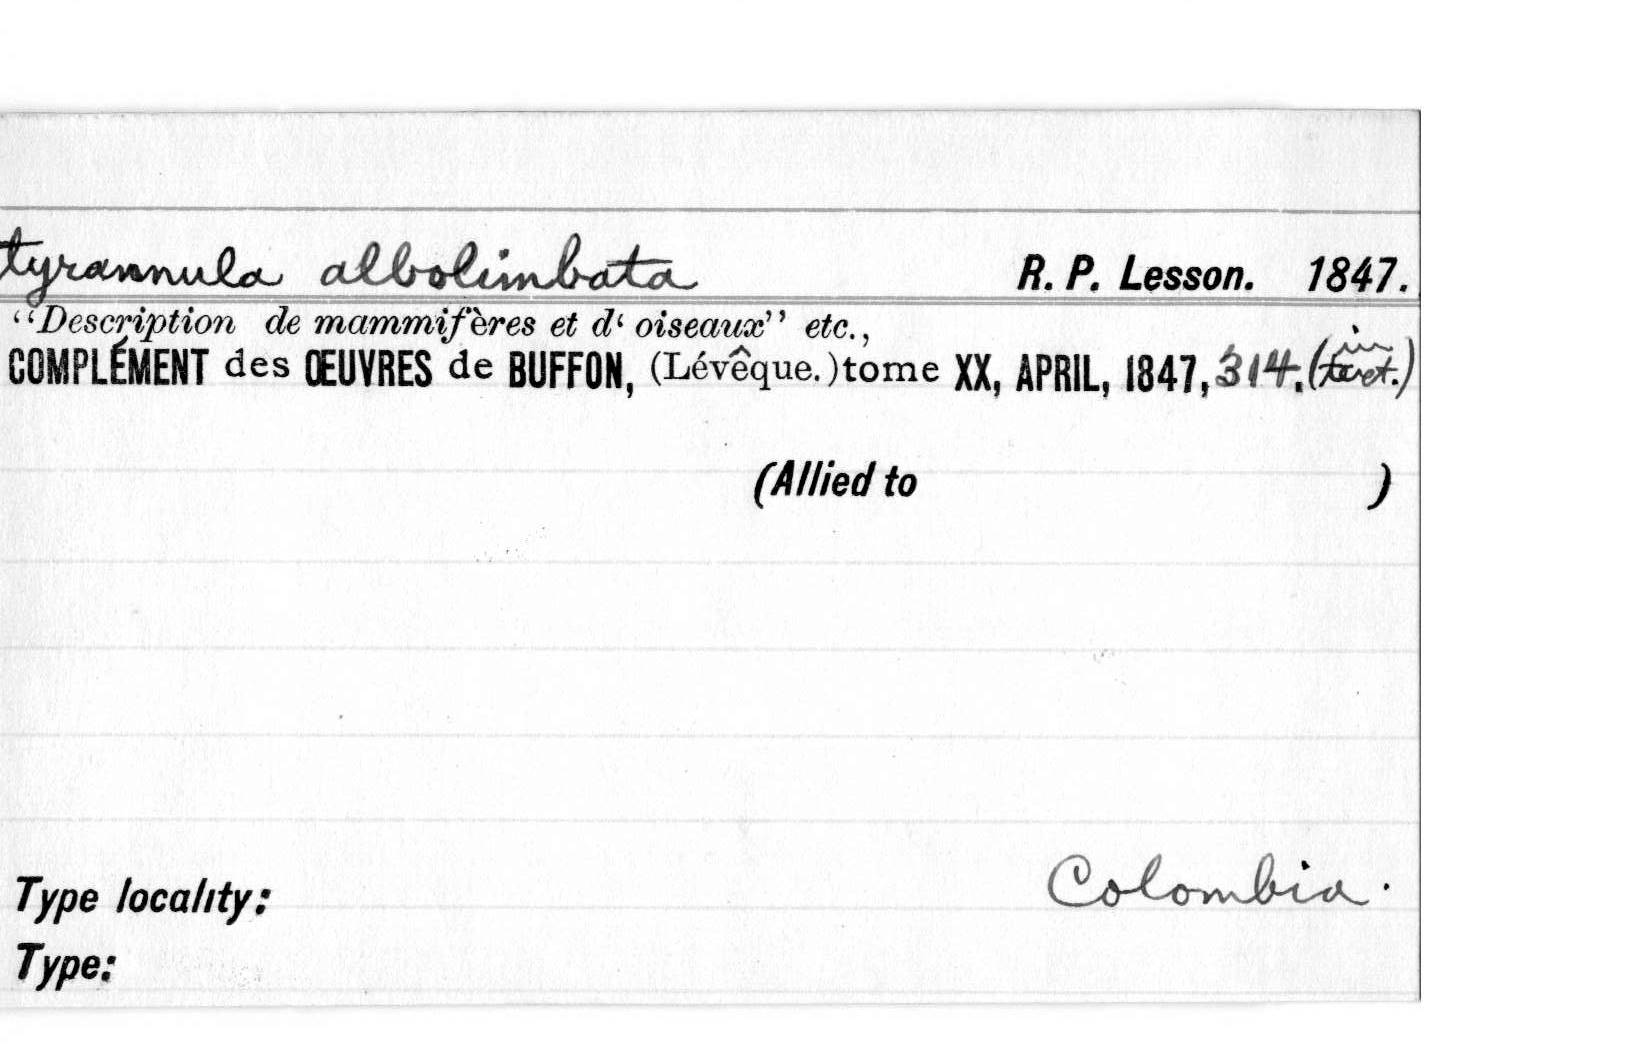 tyrannula albolimbata R. P. Lesson. 1847.
“Description de mammifères et d‘ oiseaux” etc.,
COMPLÉMENT des ŒUVRES de BUFFON, (Lévêque.) tome XX, APRIL, 1847, 314. (in text.)
(Allied to )
Type locality: Colombia.
Type: